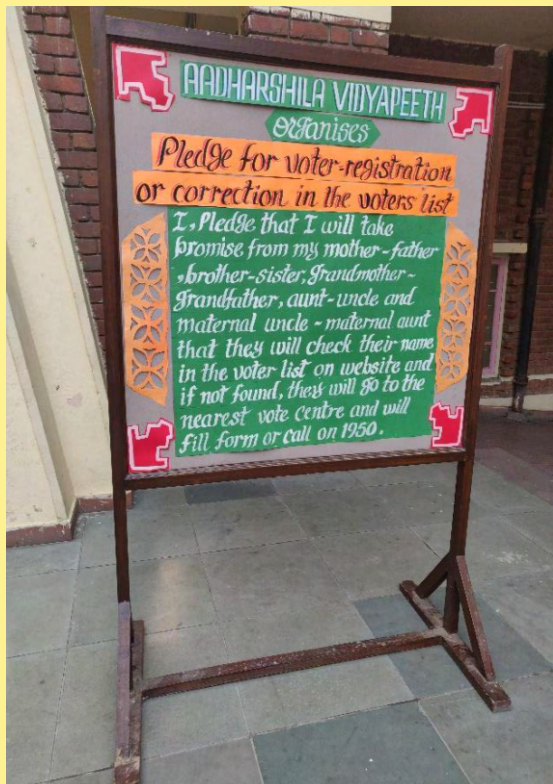 AADHARSHILA VIDYAPEETH
organises
Pledge for voter-registration
or correction in the voters list
I, Pledge that I will take
promise from my mother-father
,brother-sister, grandmother-
grandfather, aunt-uncle and
maternal uncle - maternal aunt
that they will check their name
in the voter list on website and
if not found, they will go to the
nearest vote centre and will
fill form or call on 1950.